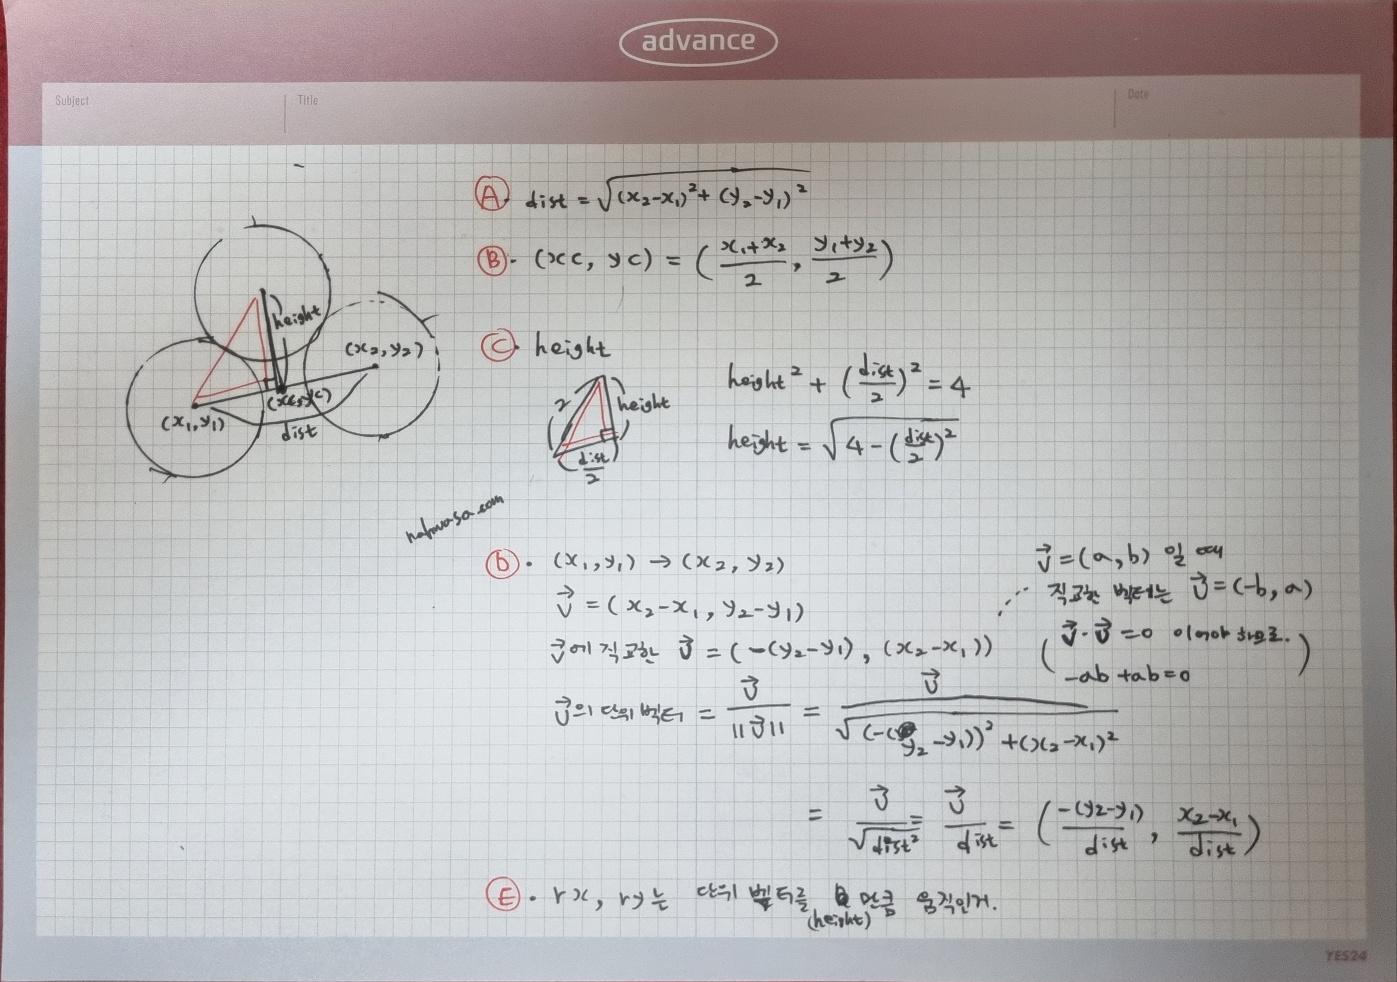 advance
Subject
Title
Date
height
(x₂, y₂)
(xc, yc)
(x₁, y₁)
dist
nahwasa.com
Ⓐ. dist = √((x₂-x₁)² + (y₂-y₁)²)
Ⓑ. (xc, yc) = ( (x₁+x₂)/2 , (y₁+y₂)/2 )
Ⓒ. height
2
height
dist/2
height² + (dist/2)² = 4
height = √(4-(dist/2)²)
Ⓓ. (x₁, y₁) → (x₂, y₂)
v⃗ = (x₂-x₁, y₂-y₁)
v⃗에 직교한 u⃗ = (-(y₂-y₁), (x₂-x₁))
u⃗의 단위 벡터 = u⃗/||u⃗|| = u⃗/√((-(y₂-y₁))² + (x₂-x₁)²)
= u⃗/√dist² = u⃗/dist = ( -(y₂-y₁)/dist , (x₂-x₁)/dist )
v⃗ = (a, b) 일 때
직교한 벡터는 u⃗ = (-b, a)
( v⃗·u⃗ = 0 이어야 하므로.
-ab + ab = 0 )
Ⓔ. rx, ry는 단위 벡터를 만큼 움직인거.
(height)
YES24